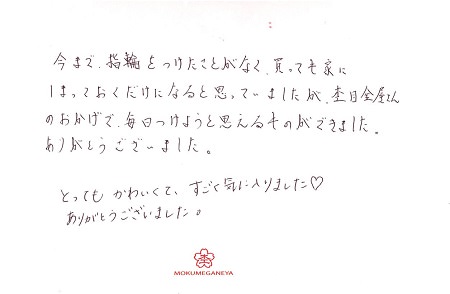 今まで、指輪をつけたことがなく、買っても家に
しまっておくだけになると思っていましたが、杢目金屋さん
のおかげで、毎日つけようと思えるものができました。
ありがとうございました。
とっても かわいくて、すごく気に入りました♡
ありがとうございました。
MOKUMEGANEYA